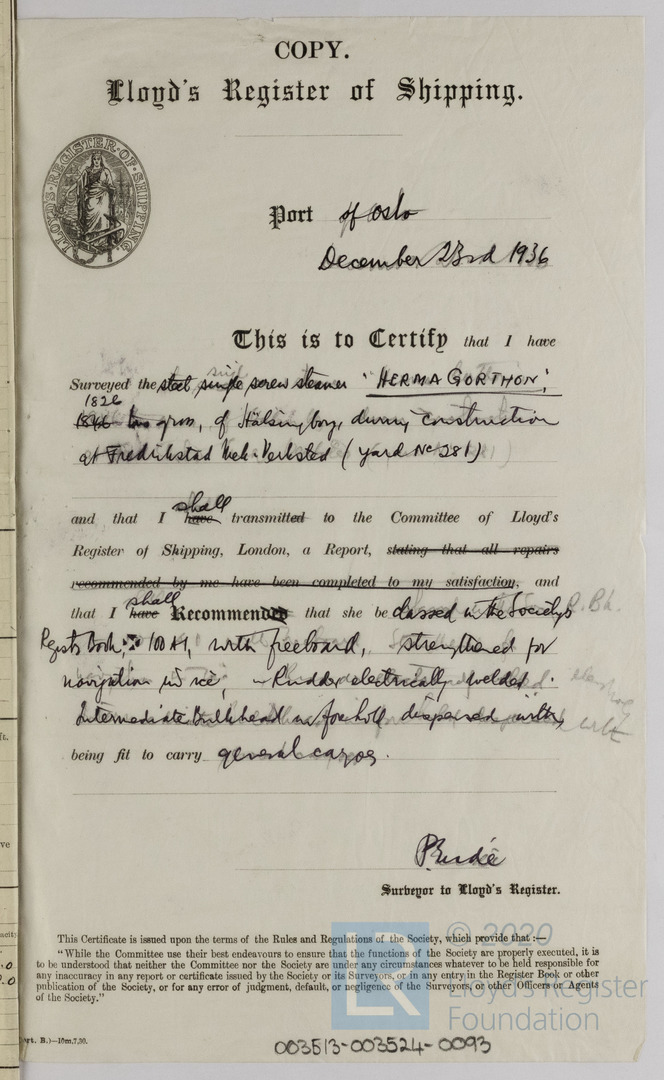 COPY.
Lloyd's Register of Shipping.
LLOYD'S·REGISTER·OF·SHIPPING
Port of Oslo
December 23rd 1936
This is to Certify that I have
Surveyed the steel single screw steamer "HERMA GORTHON",
1826
tons gross, of Hälsingborg, during construction
at Fredrikstad Mek. Verksted (yard No 281)
shall
and that I have transmitted to the Committee of Lloyd's
Register of Shipping, London, a Report, stating that all repairs
recommended by me have been completed to my satisfaction, and
shall
that I have Recommended that she be classed in the Society's
Register Book, 100 A1, with freeboard, strengthened for
navigation in ice, Rudder electrically welded.
Intermediate Bulkhead in fore hold dispensed with,
being fit to carry general cargoes.
Surveyor to Lloyd's Register.
This Certificate is issued upon the terms of the Rules and Regulations of the Society, which provide that :—
"While the Committee use their best endeavours to ensure that the functions of the Society are properly executed, it is
to be understood that neither the Committee nor the Society are under any circumstances whatever to be held responsible for
any inaccuracy in any report or certificate issued by the Society or its Surveyors, or in any entry in the Register Book or other
publication of the Society, or for any error of judgment, default, or negligence of the Surveyors, or other Officers or Agents
of the Society."
rt. B.)—10m,7,30.
003513-003524-0093
LR
© 2020
Lloyd's Register
Foundation